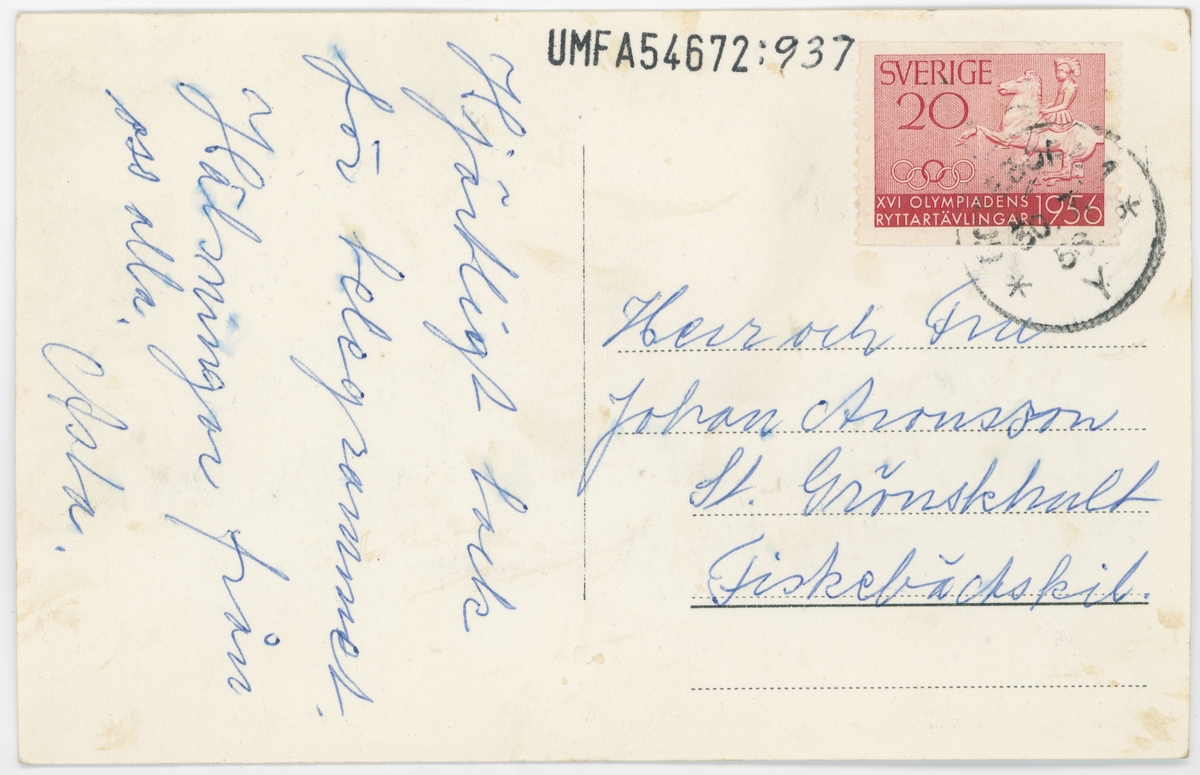 UMFA54672:937
SVERIGE
20
XVI OLYMPIADENS
RYTTARTÄVLINGAR 1956
Hjärtligt tack
för telegrammet.
Hälsningar från
oss alla.
Asta.
Herr och Fru
Johan Aronsson
St. Grönskhult
Fiskebäckskil.